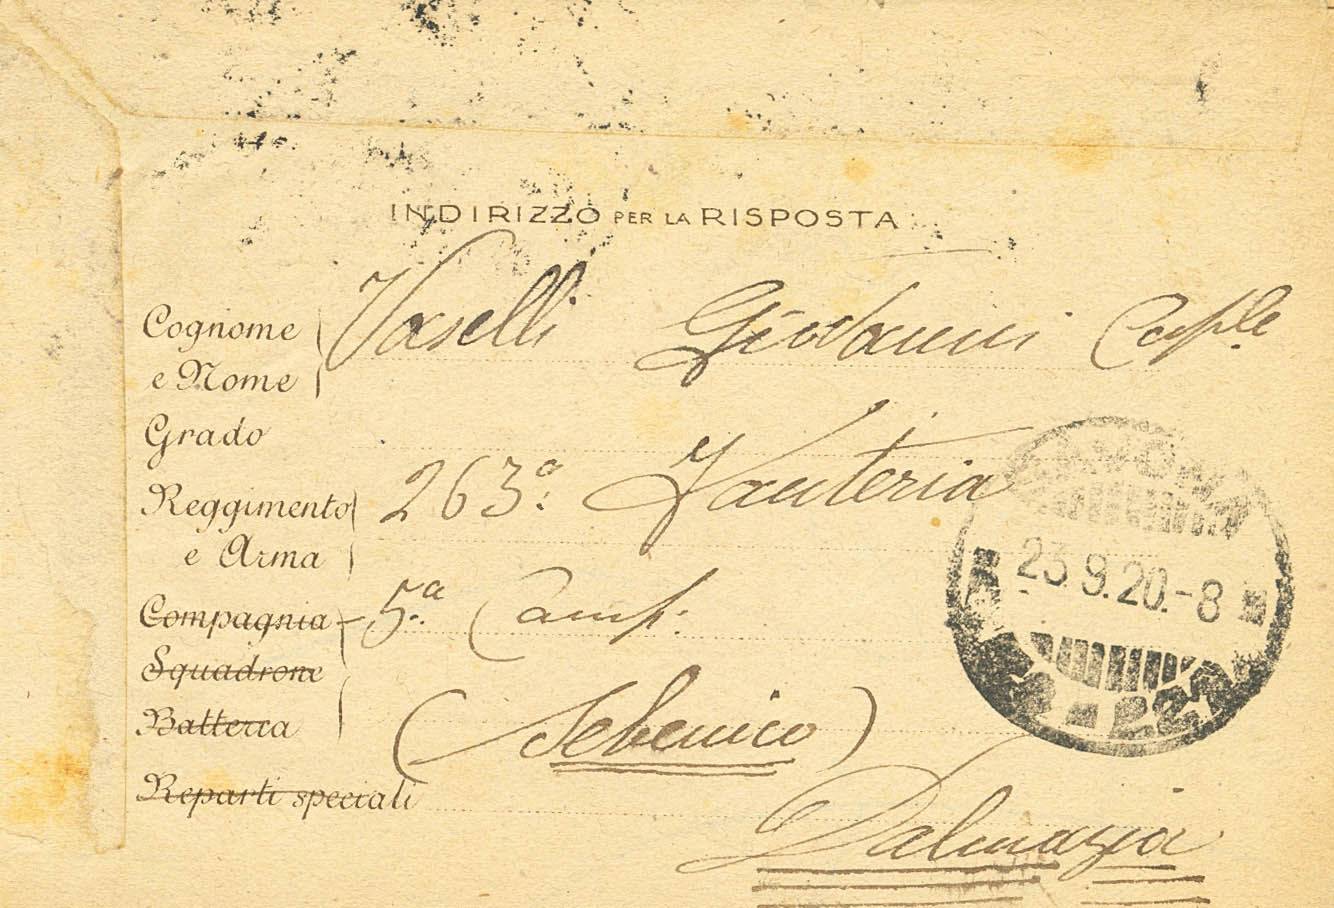 INDIRIZZO PER LA RISPOSTA
Cognome e Nome Vaselli Giovanni Cap.le
Grado
Reggimento e Arma 263º. Fanteria
Compagnia 5ª. Comp.
Squadrone
Batteria
(Sebenico)
Reparti speciali
Dalmazia
23.9.20.-8